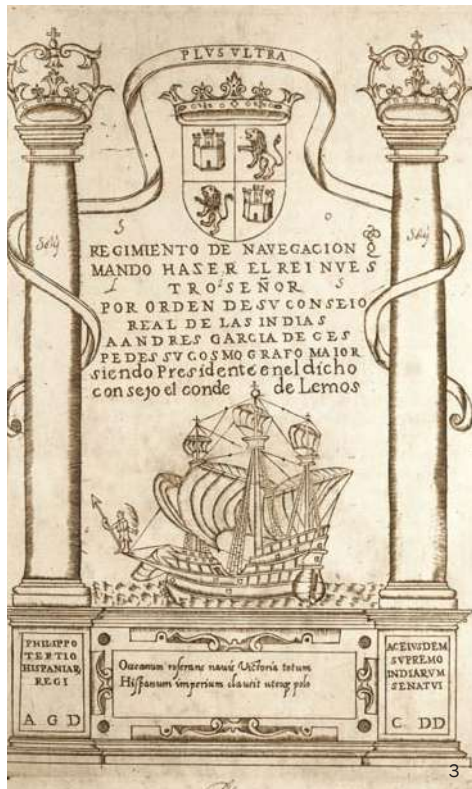 PLVS VLTRA
REGIMIENTO DE NAVEGACION
MANDO HASER EL REI NVES
TRO SEÑOR
POR ORDEN DE SV CONSEIO
REAL DE LAS INDIAS
A ANDRES GARCIA DE CES
PEDES SV COSMOGRAFO MAIOR
siendo Presidente en el dicho
consejo el conde de Lemos
PHILIPPO
TERTIO
HISPANIAR,
REGI
A G D
Oceanum reserans nauis Victoria totum
Hispanum imperium clausit utroq, polo
AC EIVSDEM
SVPREMO
INDIARVM
SENATVI
C DD
3